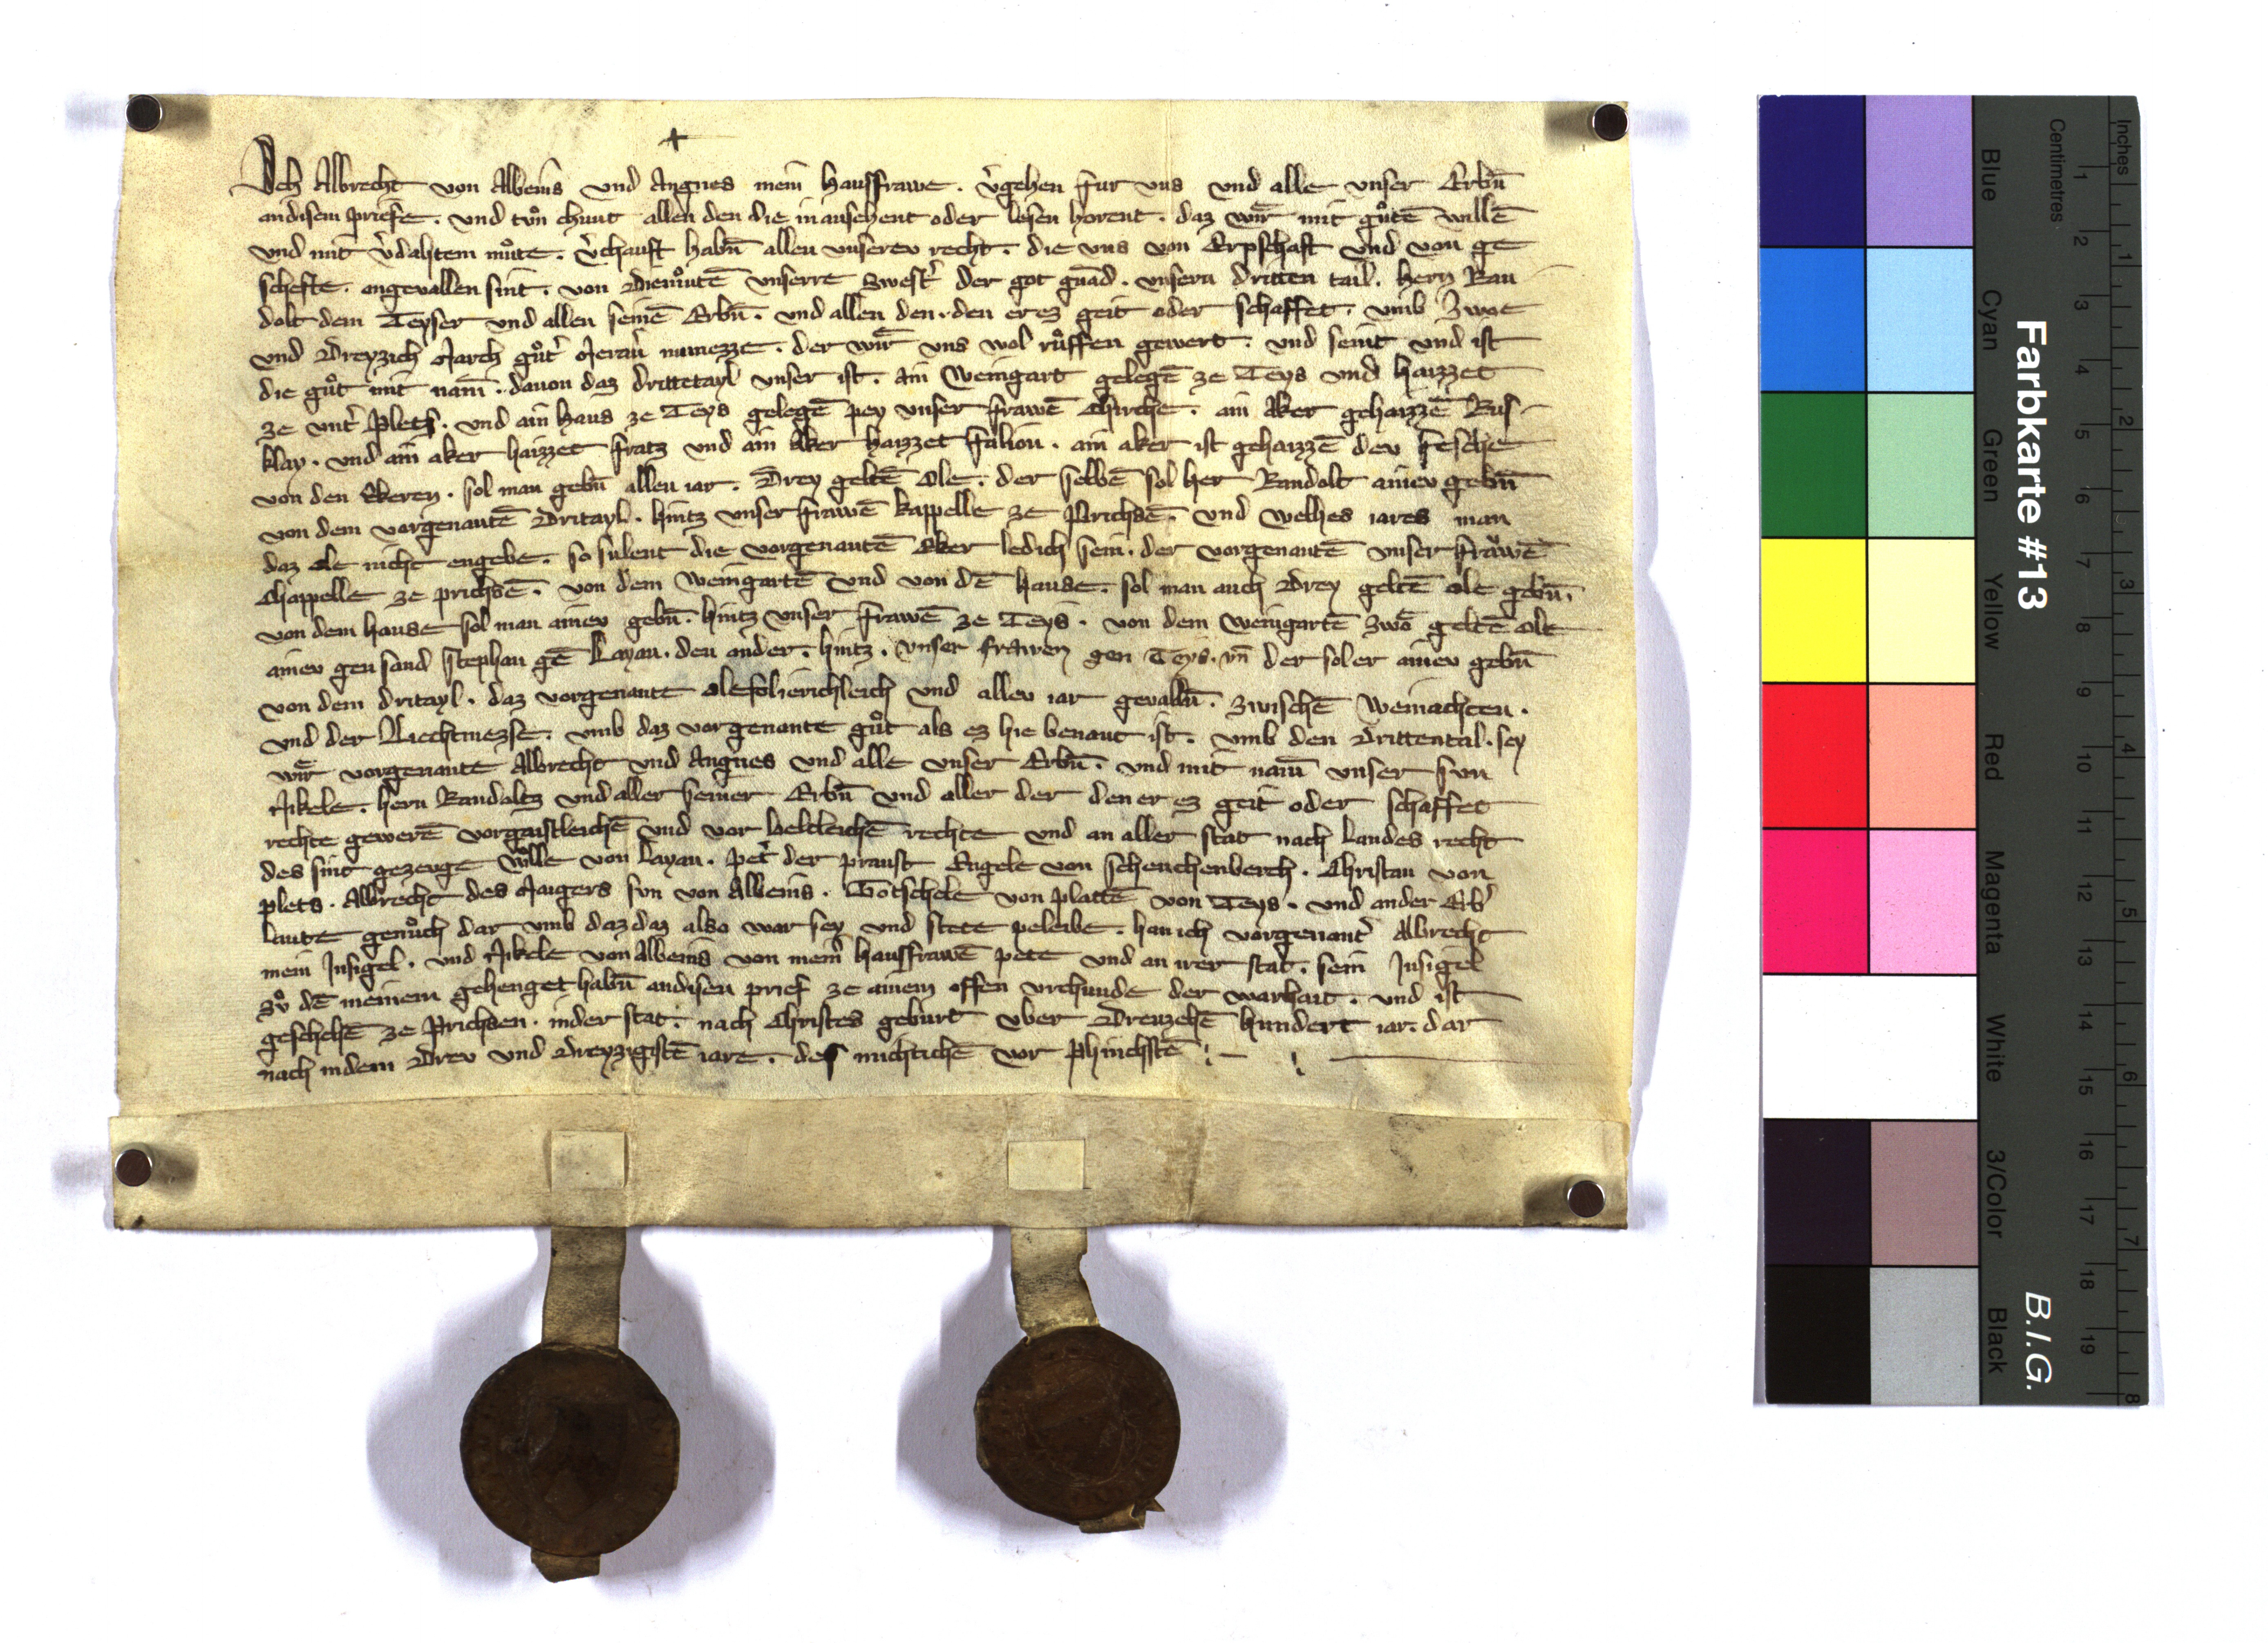 Ich Albrecht von Albeins vnd Angnes mein hausfrawe . v̓gehen fur vns vnd alle vnser Erbn̄
andisem priefe . vnd tvͦn chunt allen den die in ansehent oder lesen horent . daz wir mit guͦtē willē
vnd mit v̓dahtem muͦte . v̓chauft habn̄ allen vnserev recht . die vns von Erpschaft vnd von ge
schefte . angevallen sint . von Diemuͦtē vnserre swest̓ der got gnad . vnsern dritten tail . hern Ran
dolt dem Teyser vnd allen seinē Erbn̄ . vnd allen den . den er ez geit oder schaffet . vmb Zwoe
vnd Dreyzich March guͦt̓ Meran̓ mvnezze . der wir vns wol ruͦffen gewert . vnd seint vnd ist
die guͦt mit nam̄ . davon daz drittetayl vnser ist . Ain Weingart gelegē ze Teys vnd haizzet
ze vnt̓ Plets . vnd ain haus ze Teys gelegē pey vnser frawē Chirche . ain Aker gehaizzē Rus
klay . vnd ain aker haizzet fratz vnd ain Aker haizzet falion . ain aker ist gehaizzē dev fesche
von den Ekeren . sol man gebn̄ allen iar . Drey geltē Ole . der selbē sol her Randolt ainev gebn̄
von dem vorgenantē Dritayl . hintz vnser frawē kappelle ze Prichsē . vnd welhes iares man
daz ole nicht engebe . so sulent die vorgenantē Eker ledich sein . der vorgenantē vnser frawē
Chappelle ze prichsē . von dem weingartē vnd von dē hause . sol man auch Drey geltē ole gebn̄ .
von dem hause sol man ainev gebn̄ . hintz vnser frawē ze Teys . von dem weingartē zwo geltē ole
ainev gen sand stephan gē Layan . den ander . hintz . vnser frawen gen Teys . vn̄ der sol er ainev gebn̄
von dem dritayl . daz vorgenante ole sol ierichleich vnd allev iar gevalln̄ . zwischē Weinachten .
vnd der Liechtmezse . vmb daz vorgenante guͦt als ez hie benant ist . vmb den Drittental . sey
wir vorgenante Albrecht vnd Angnes vnd alle vnser Erbn̄ . vnd mit nam̄ vnser svn
Nikele . hern Randoltz vnd aller seiner Erbn̄ vnd aller der den er ez geit oder schaffet
rechte gewerē vor gaistleichē vnd vor weltleichē rechte vnd an aller stat nach Landes recht
des sint gezeuge Wͦlle von Layan . pet̓ der praust Engele von schenchenberch . Christan von
plets . Albrecht des Maigers svn von Albeins . Gotschele von Plattē von Teys . vnd ander Erb̓
Laute genuͦch dar vmb daz daz also war sey vnd stete peleibe . han ich vorgenant̓ Albrecht
mein Insigel . vnd Nikele von Albeins von mein̓ hausfrawē pete vnd an irer stat . sein Insigel
zvͦ dē meinem gehenget habn̄ andisen prief ze ainem offen vrchunde der warhait . vnd ist
geschehē ze Prichsen . in der stat . nach Christes geburt vber Dreuzehē hundert iar . dar
nach in dem Drev vnd Dreyzigistē iare . des michtichē vor phinchstē
Farbkarte #13
B.I.G.
Blue Cyan Green Yellow Red Magenta White 3/Color Black
Centimetres 1 2 3 4 5 6 7 8 9 10 11 12 13 14 15 16 17 18 19
Inches 1 2 3 4 5 6 7 8